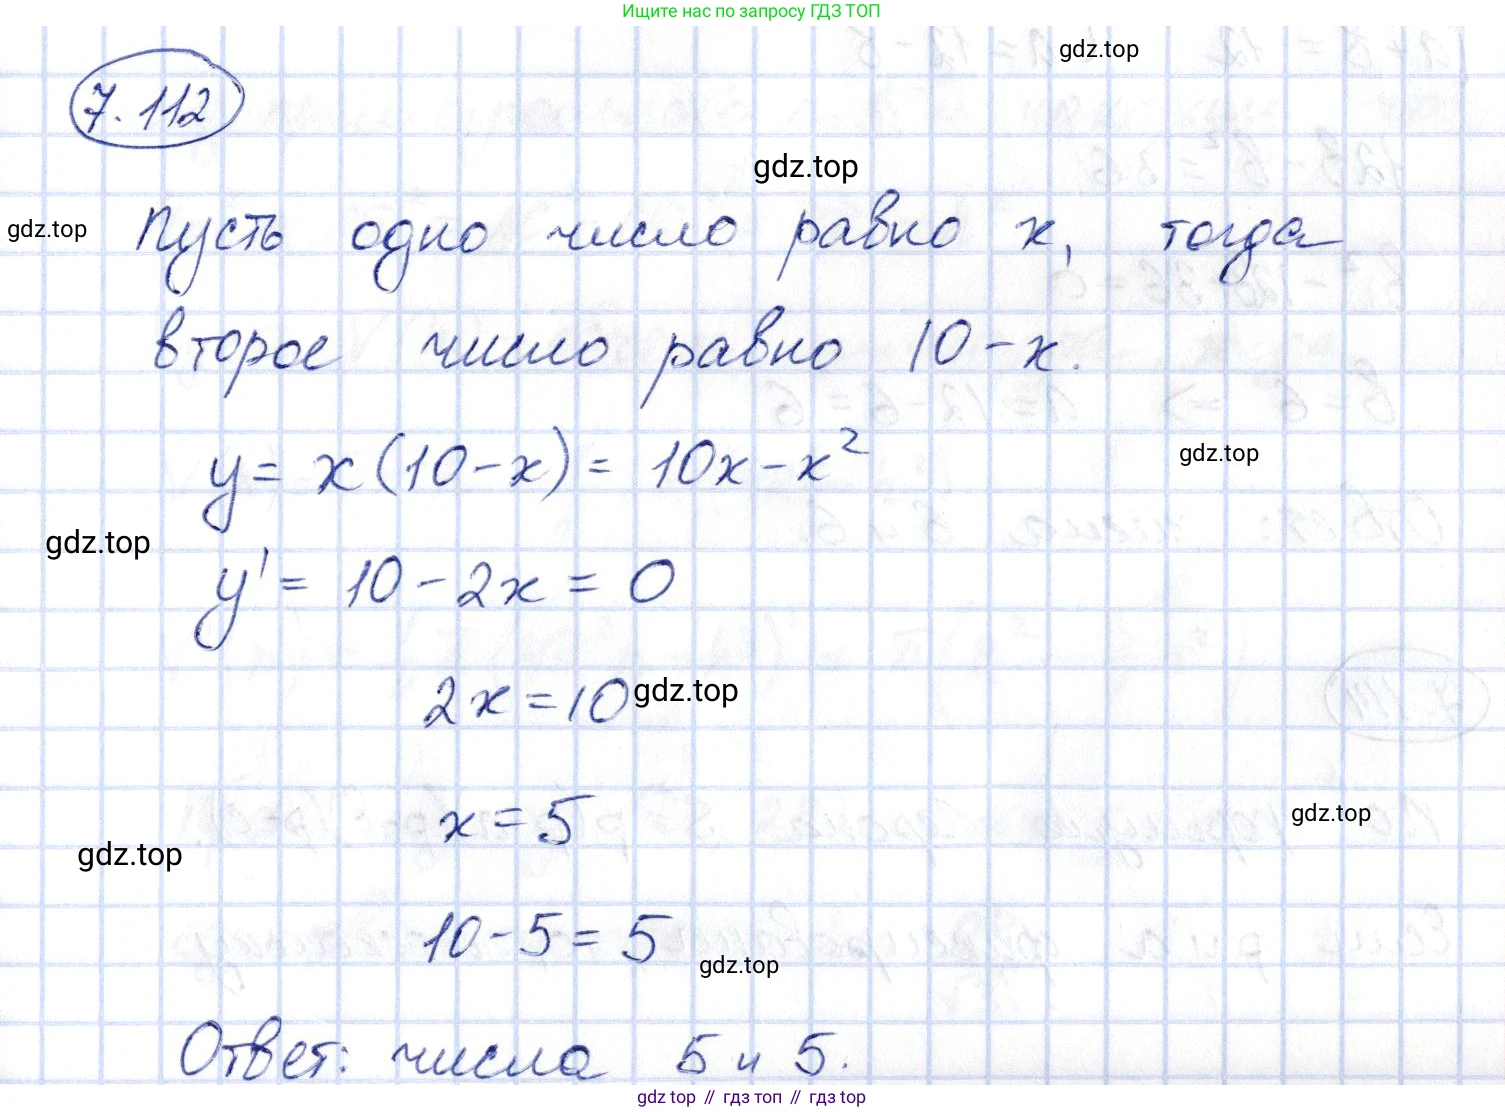 Ищите нас по запросу ГДЗ ТОП
gdz.top
7.112
gdz.top
gdz.top
Пусть одно число равно x, тогда
второе число равно 10-x.
y = x(10-x) = 10x-x²
gdz.top
gdz.top
y' = 10-2x = 0
2x=10
gdz.top
x=5
gdz.top
gdz.top
10-5=5
gdz.top
Ответ: числа 5 и 5.
gdz top // гдз топ // гдз top